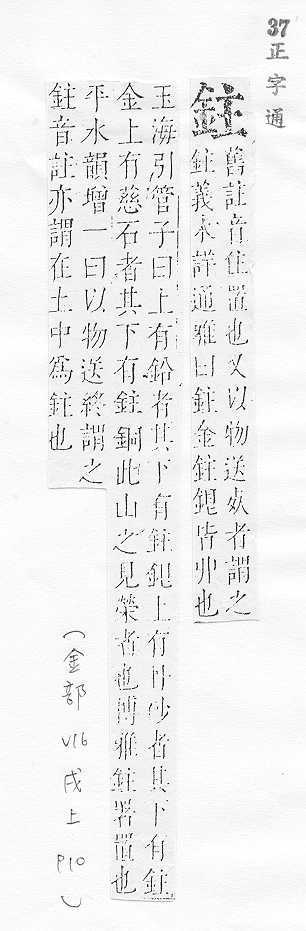 37正字通
鉒
舊註音住置也又以物送死者謂之
鉒義未詳通雅曰鉒金鉒銀皆丱也
玉海引管子曰上有鉛者其下有鉒銀上有丹沙者其下有鉒
金上有慈石者其下有鉒銅此山之見榮者也博雅鉒署置也
平水韻增一曰以物送終謂之
鉒音註亦謂在土中爲鉒也
(金部 V16 戌上 P10)